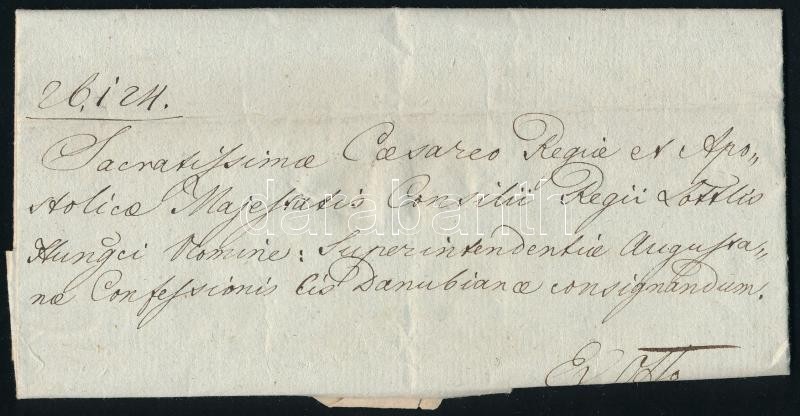 26,124.
Sacratissimæ Cæsareo Regiæ et Apo„
stolicæ Majestatis Consilii Regii Lottlis
Hungci Nomine: Superintendentiæ Augusta„
næ Confessionis Cis Danubianæ consignandum.
Ex Offo
darabanth